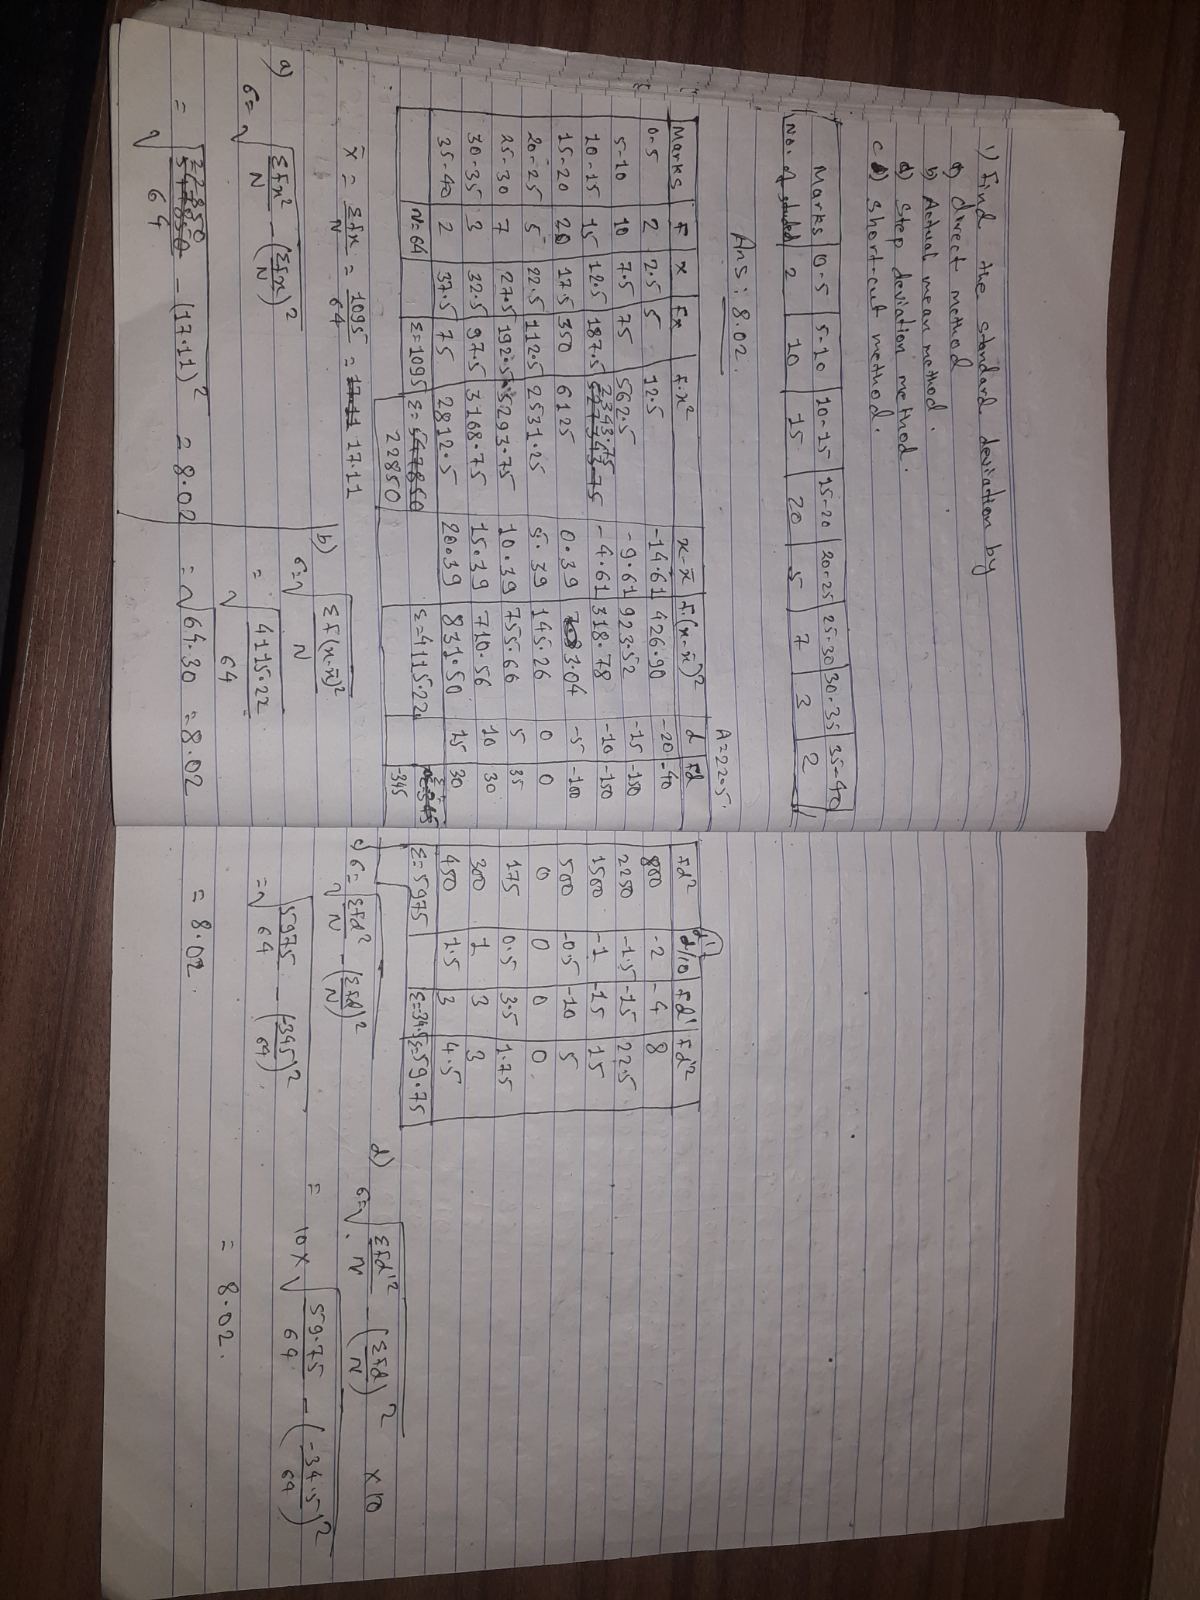 1) Find the standard deviation by
a) direct method
b) Actual mean method.
d) Step deviation method.
c) Short-cut method.
Marks 0-5 5-10 10-15 15-20 20-25 25-30 30-35 35-40
No. of student 2 10 15 20 5 7 3 2
Ans: 8.02.
A=22.5
Marks F x Fx F.x² x-x̄ F.(x-x̄)² d Fd Fd² d' d/10 Fd' Fd'²
0-5 2 2.5 5 12.5 -14.61 426.90 -20 -40 800 -2 -4 8
5-10 10 7.5 75 562.5 -9.61 923.52 -15 -150 2250 -1.5 -15 22.5
10-15 15 12.5 187.5 2343.75 -4.61 318.78 -10 -150 1500 -1 -15 15
15-20 20 17.5 350 6125 0.39 3.04 -5 -100 500 -0.5 -10 5
20-25 5 22.5 112.5 2531.25 5.39 145.26 0 0 0 0 0 0
25-30 7 27.5 192.5 5293.75 10.39 755.66 5 35 175 0.5 3.5 1.75
30-35 3 32.5 97.5 3168.75 15.39 710.56 10 30 300 1 3 3
35-40 2 37.5 75 2812.5 20.39 831.50 15 30 450 1.5 3 4.5
N=64 Σ=1095 Σ= 22850 Σ=4115.22 -345 Σ=5975 Σ=-34.5 Σ=59.75
x̄ = Σfx/N = 1095/64 = 17.11
a)
σ = √(Σfx²/N - (Σfx/N)²)
= √(22850/64 - (17.11)²) = 8.02
b)
σ = √(Σf(x-x̄)²/N)
= √(4115.22/64)
= √64.30 = 8.02
c) σ = √(Σfd²/N - (Σfd/N)²)
= √(5975/64 - (-345/64)²)
= 8.02.
d)
σ = √(Σfd'²/N - (Σfd/N)²) ×10
= 10×√(59.75/64 - (-34.5/64)²)
= 8.02.